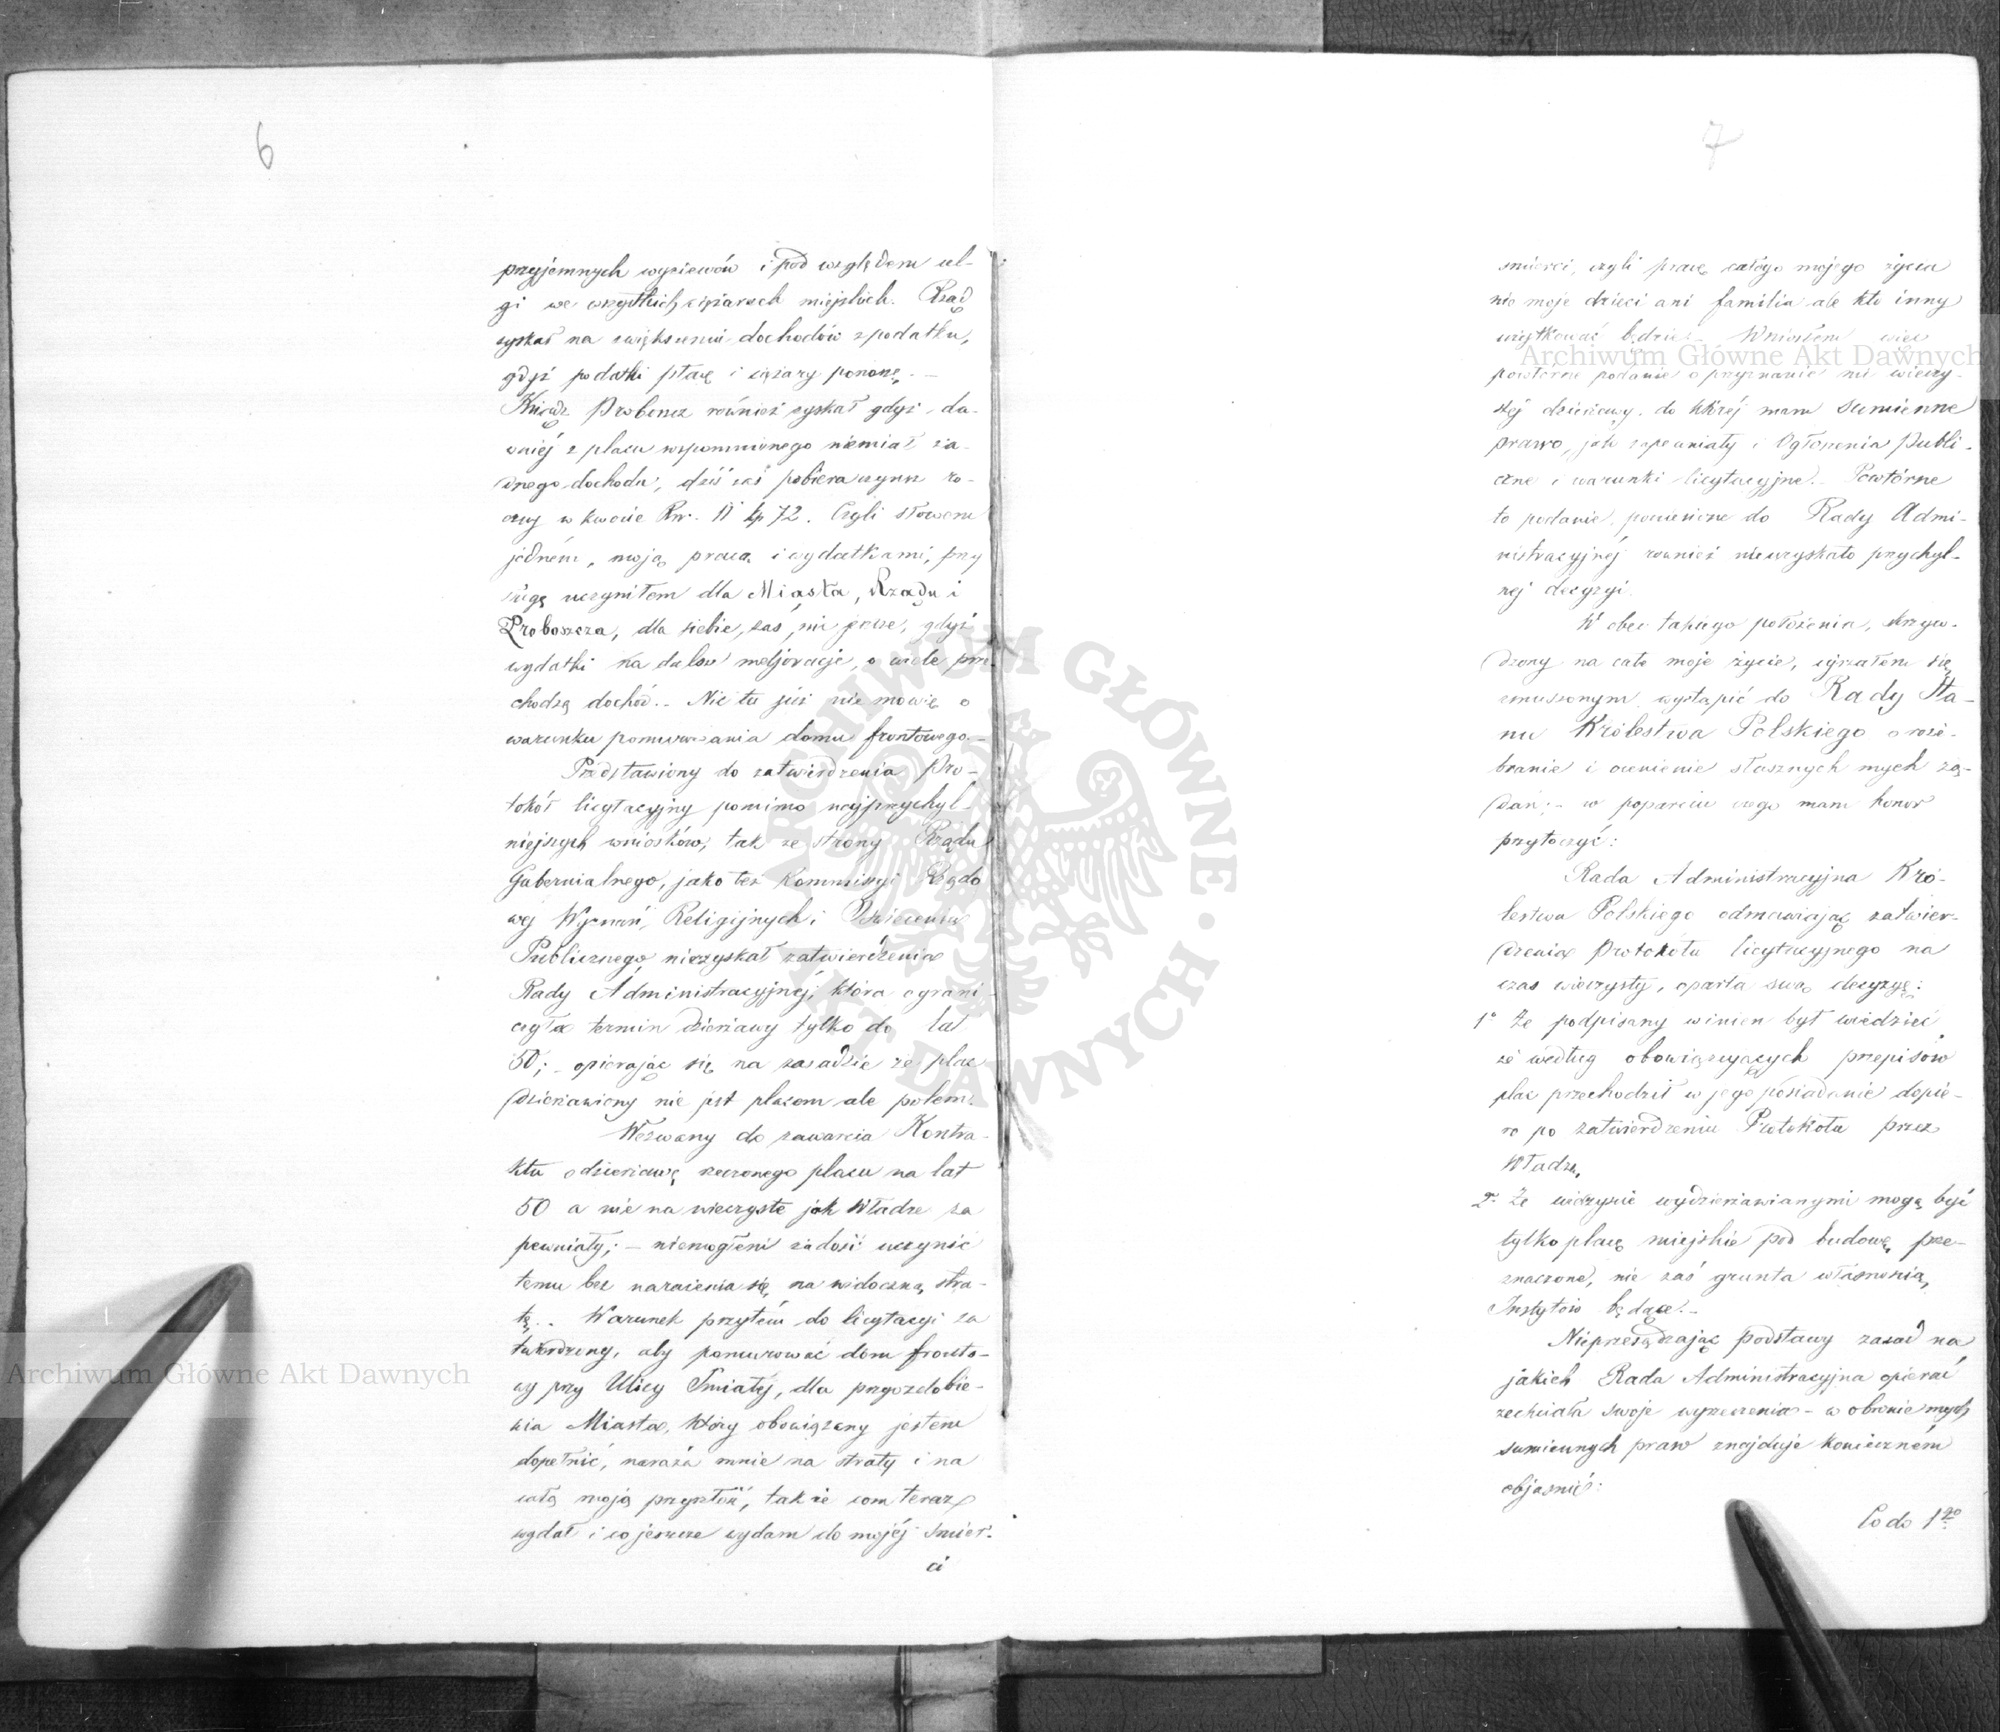 6
przyjemnych wyziewów i pod względem ul-
gi we wszystkich ciężarach miejskich. Rząd
zyskał na zwiększeniu dochodów z podatku,
gdyż podatki płacę i ciężary ponoszę. —
Ksiądz Proboszcz również zyskał gdyż da-
wniéj z placu wspomnionego niemiał ża-
dnego dochodu, dziś zaś pobiera czynsz ro-
czny w kwocie Rsr. 11 kp 72. Czyli słowem
jedném, moją pracą i wydatkami, przy
sługę uczyniłem dla Miasta, Rządu i
Proboszcza, dla siebie, zaś nie gdyż
wydatki na dalsze meljoracje, o wiele prze-
chodzą dochód. — Nic tu już nie mówię o
warunku pomurowania domu frontowego. —
Przedstawiony do zatwierdzenia Pro-
tokół licytacyjny pomimo najprzychyl-
niejszych wniosków, tak ze strony Rządu
Gubernialnego, jako też Kommissyi Rządo
wej Wyznań Religijnych i Oświecenia
Publicznego niezyskał zatwierdzenia
Rady Administracyjnéj, która ograni-
czyła termin dzierżawy tylko do lat
50; — opierając się na zasadzie że plac
dzierżawiony nie jest placem ale polem.
Wezwany do zawarcia Kontra-
ktu o dzierżawę rzeczonego placu na lat
50 a nie na wieczyste jak Władze za
pewniały; — niemogłem zadość uczynić
temu bez narażenia się na widoczną stra-
tę. — Warunek przytém do licytacyi za
twierdzony, aby pomurować dom fronto-
wy przy Ulicy Śmiałej, dla przyozdobie-
nia Miasta, który obowiązany jestem
dopełnić, naraża mnie na straty i na
całą moją przyszłość, tak że com teraz
wydał i co jeszcze wydam do mojéj śmier-
ci
7
śmierci, czyli pracę całego mojego życia
nie moje dzieci ani familia ale kto inny
użytkować będzie. — Wniosłem więc
powtórne podanie o przyznanie mi wieczy-
stéj dzierżawy, do któréj mam sumienne
prawo, jak zapewniały i Ogłoszenia Publi-
czne i warunki licytacyjne. — Powtórne
to podanie, poniesione do Rady Admi-
nistracyjnéj również nieuzyskało przychyl-
nej decyzyi.
W obec takiego położenia, skrzyw-
dzony na całe moje życie, ujrzałem się
zmuszonym wystąpić do Rady Sta-
nu Królestwa Polskiego o roze-
branie i ocenienie słusznych mych żą-
dań; — w poparciu czego mam honor
przytoczyć:
Rada Administracyjna Kró-
lestwa Polskiego odmawiając zatwier-
dzenia Protokółu licytacyjnego na
czas wieczysty, oparła swą decyzyę:
1° Że podpisany winien był wiedzieć
że według obowiązujących przepisów
plac przechodził w jego posiadanie dopie-
ro po zatwierdzeniu Protokołu przez
Władzę,
2° Że wieczyście wydzierżawianymi mogą być
tylko place miejskie pod budowę prze-
znaczone, nie zaś grunta własnością
Instytów będące. —
Nieprzesądzając podstawy zasad na
jakich Rada Administracyjna opierać
zechciała swoje wyrzeczenia — w obronie mych
sumiennych praw znajduję koniecznem
objaśnić:
Co do 1go
Archiwum Główne Akt Dawnych
Archiwum Główne Akt Dawnych
ARCHIWUM GŁÓWNE AKT DAWNYCH